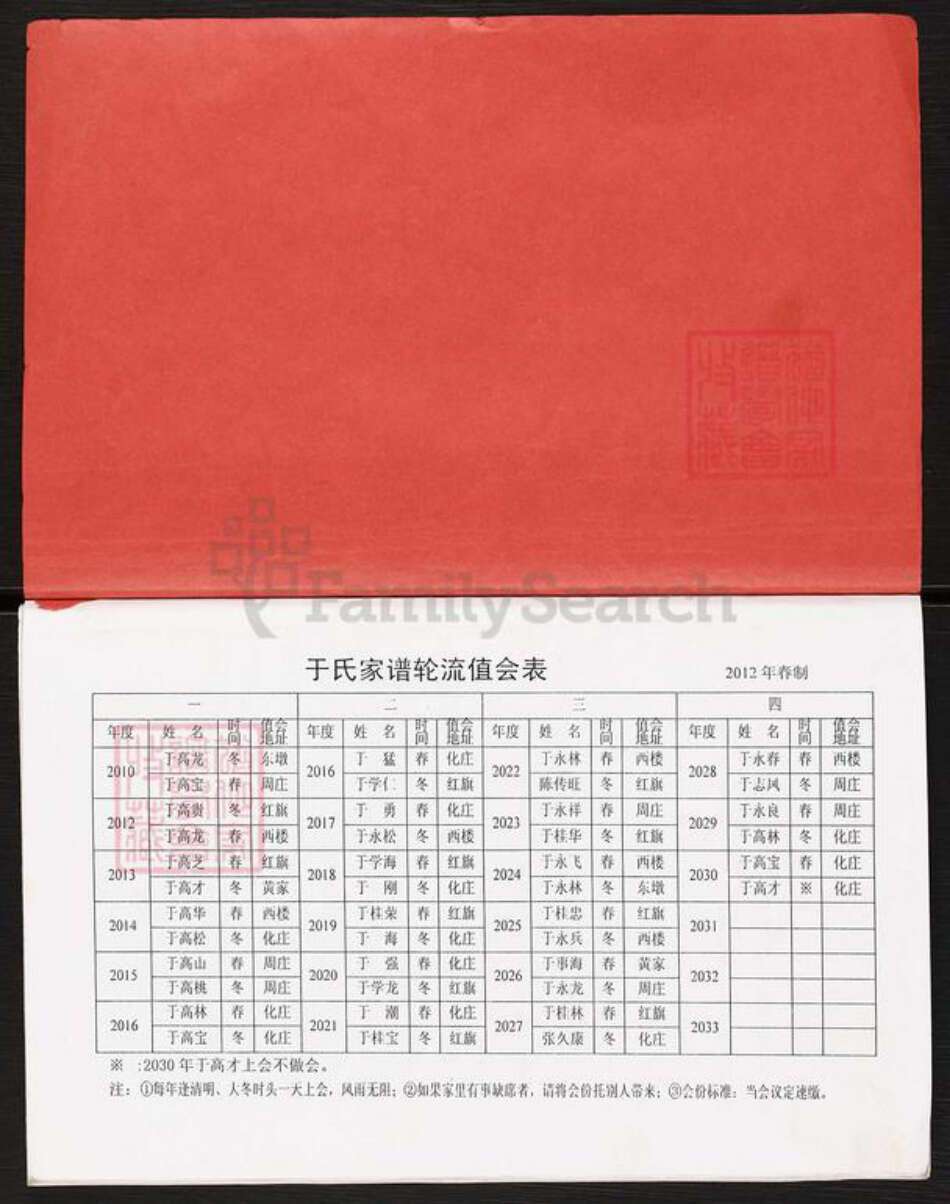 FamilySearch
于氏家谱轮流值会表 2012年春制
一 二 三 四
年度 姓 名 时间 值会地址 年度 姓 名 时间 值会地址 年度 姓 名 时间 值会地址 年度 姓 名 时间 值会地址
2010 于高龙 冬 东墩 2016 于 猛 春 化庄 2022 于永林 春 西楼 2028 于永春 春 西楼
于高宝 春 周庄 于学仁 冬 红旗 陈传旺 冬 红旗 于志凤 冬 周庄
2012 于高贵 冬 红旗 2017 于 勇 春 化庄 2023 于永祥 春 周庄 2029 于永良 春 周庄
于高龙 春 西楼 于永松 冬 西楼 于桂华 冬 红旗 于高林 冬 化庄
2013 于高芝 春 红旗 2018 于学海 春 红旗 2024 于永飞 春 西楼 2030 于高宝 春 化庄
于高才 冬 黄家 于 刚 冬 化庄 于永林 冬 东墩 于高才 ※ 化庄
2014 于高华 春 西楼 2019 于桂荣 春 红旗 2025 于桂忠 春 红旗 2031
于高松 冬 化庄 于 海 冬 化庄 于永兵 冬 西楼
2015 于高山 春 周庄 2020 于 强 春 化庄 2026 于事海 春 黄家 2032
于高桃 冬 周庄 于学龙 冬 红旗 于永龙 冬 周庄
2016 于高林 春 化庄 2021 于 潮 春 化庄 2027 于桂林 春 红旗 2033
于高宝 冬 化庄 于桂宝 冬 红旗 张久康 冬 化庄
※ :2030年于高才上会不做会。
注：①每年逢清明、大冬时头一天上会，风雨无阻；②如果家里有事缺席者，请将会份托别人带来；③会份标准：当会议定速缴。